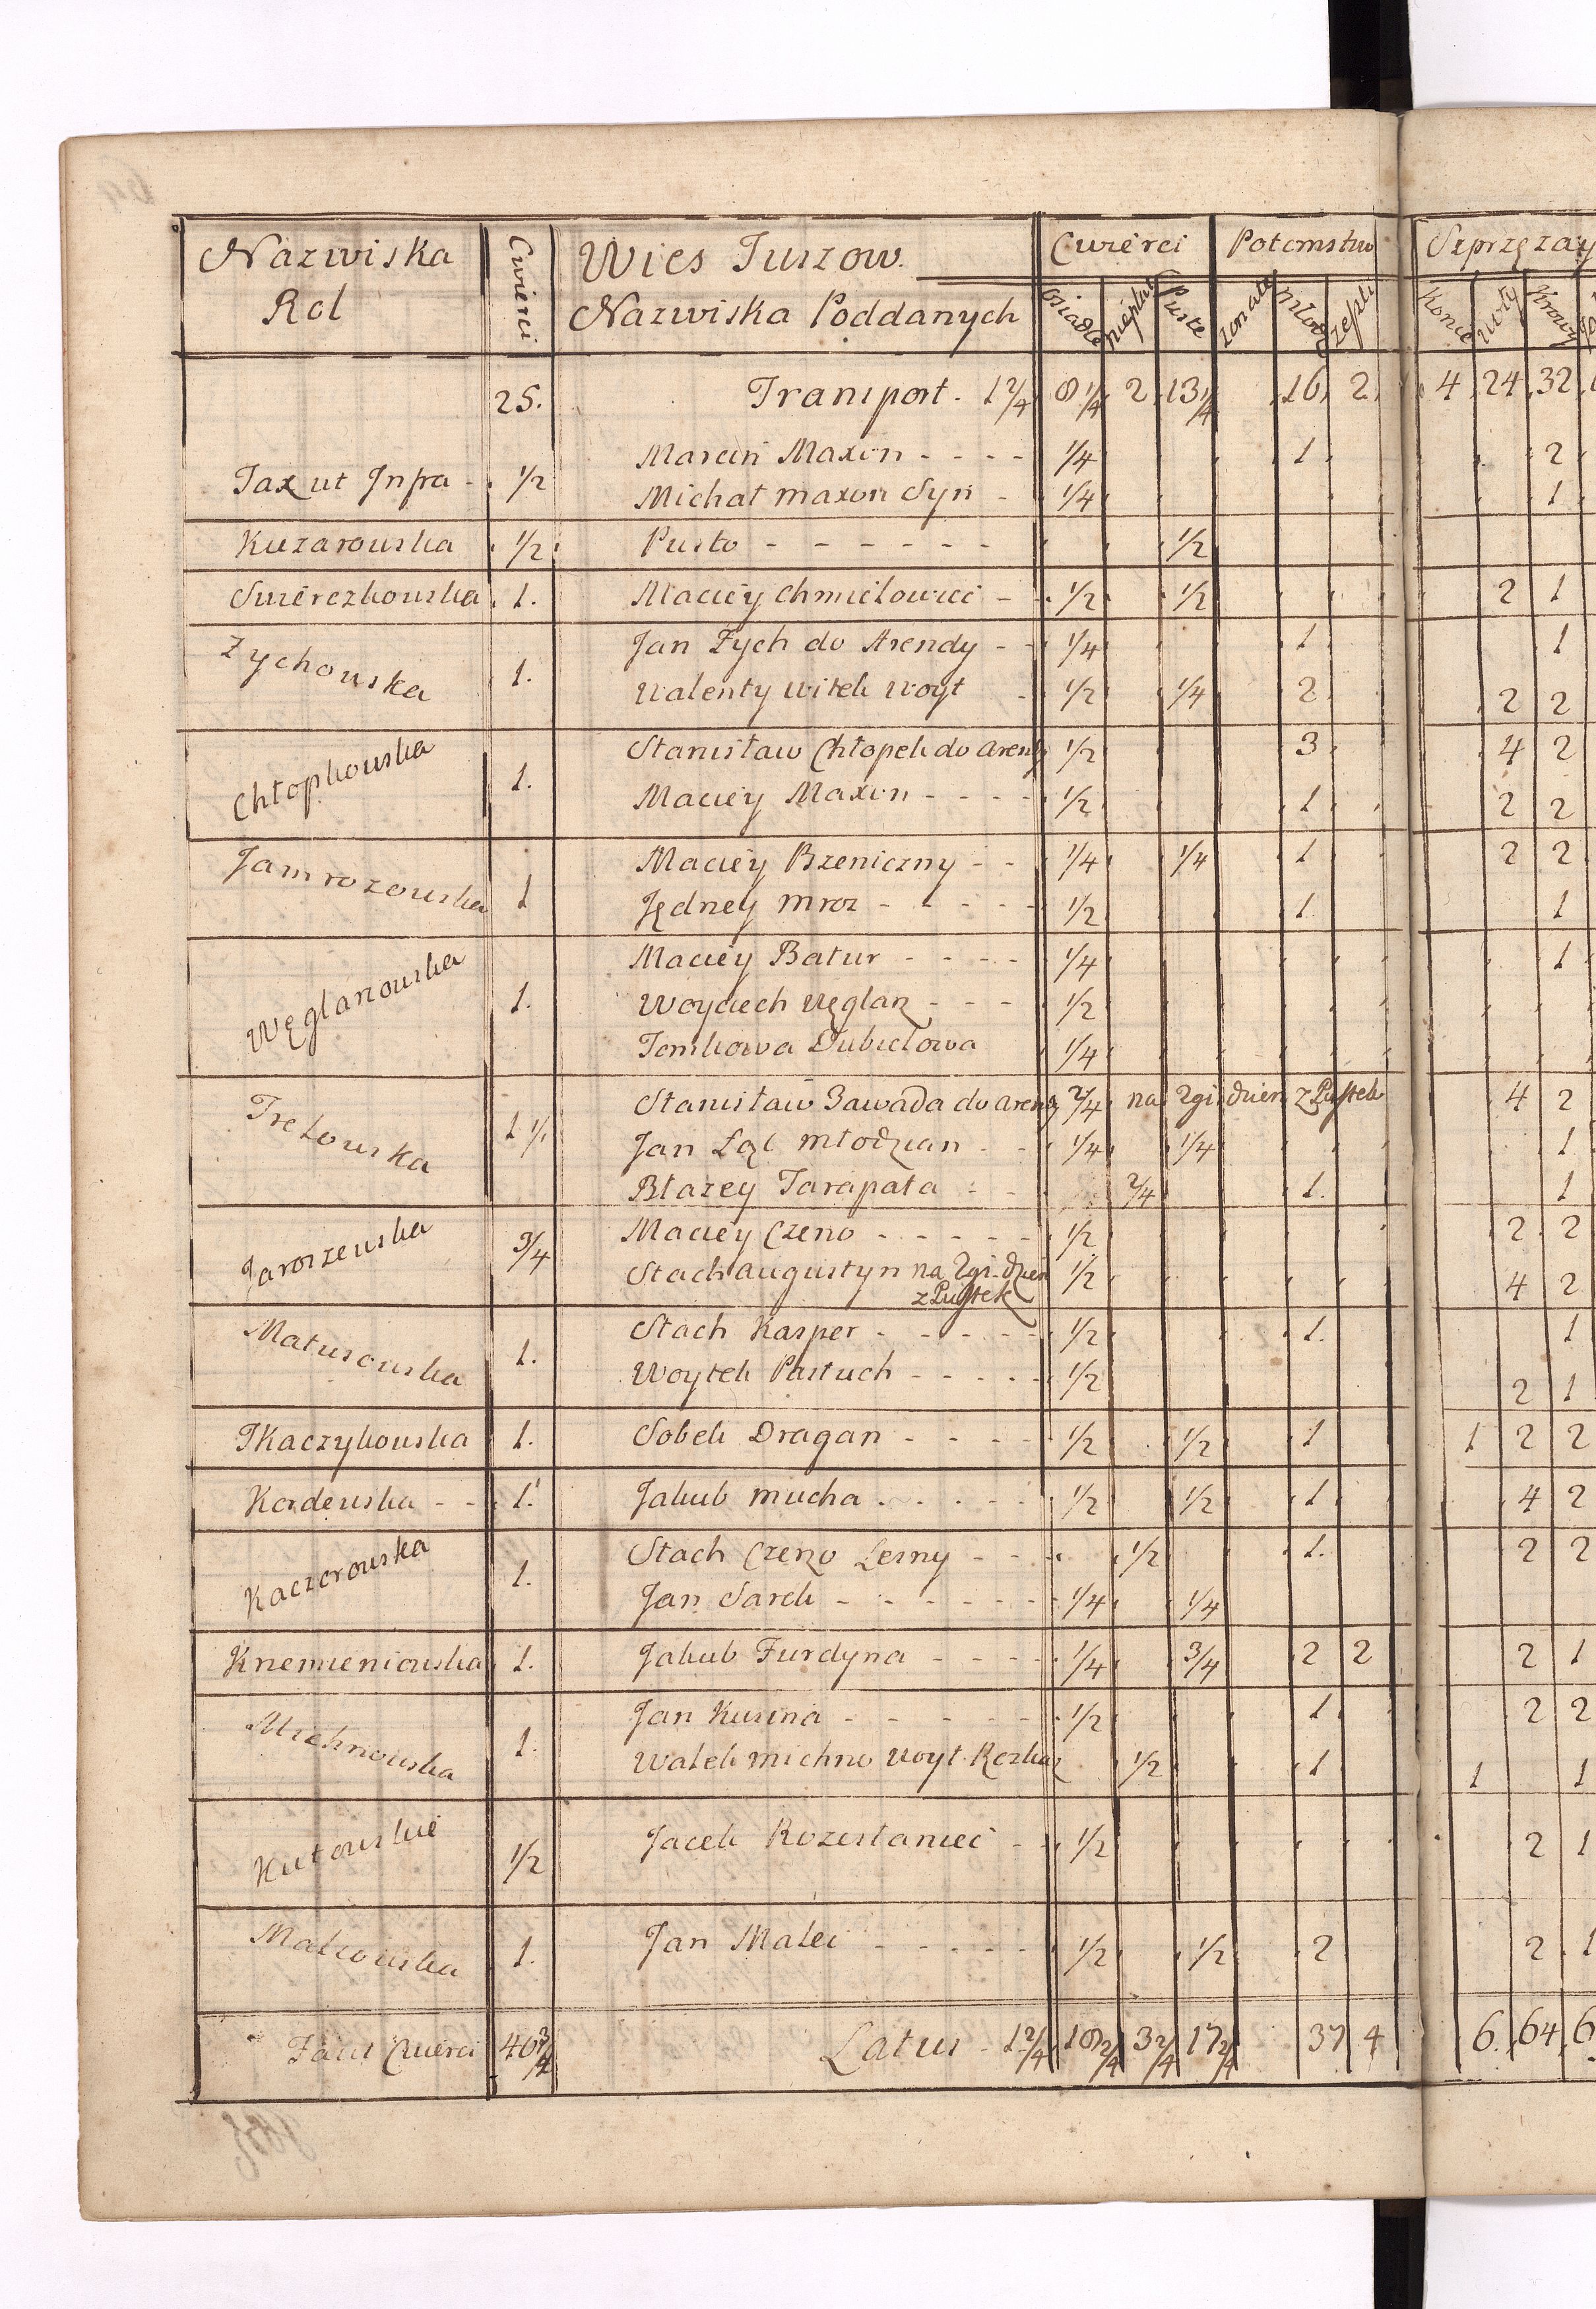 Nazwiska Rol Cwierci Wies Tuszow. Cwierci Potomstwo Szprzęzay
Nazwiska Poddanych osiadłe Puste zonate Młodz Konie woły Krowy
25. Transport. 1 2/4 8 1/4 2 13 1/4 16 2 4 24 32
Marcin Maxon 1/4 1 2
Tax ut Infra 1/2 Michał maxon Syn 1/4 1
Kuzarowska 1/2 Pusto 1/2
Swierczkowska 1. Maciey Chmielowiec 1/2 1/2 2 1
Zychowska 1. Jan Zych do Arendy 1/4 1 1
Walenty witek woyt 1/2 1/4 2 2 2
Chłopkowska 1. Stanisław Chłopek do Arendy 1/2 3 4 2
Maciey Maxon 1/2 1 2 2
Jamrozowska 1 Maciey Brzeniczny 1/4 1/4 1 2 2
Jędrzey mroz 1/2 1 1
Węglarzowska 1. Maciey Batur 1/4 1
Woyciech Węglarz 1/2
Tomkowa Dubielowa 1/4
Trelowska Stanisław Zawada do Arendy 2/4 na 2gi dzien z Pustek 4 2
Jan Łąc młodzian 1/4 1/4 1
Błazey Tarapata 2/4 1. 1
Jaroszewska 3/4 Maciey Czerw 1/2 2 2
Stach augustyn na 2gi dzien 1/2 4 2
z Pustek
Matusowska 1. Stach Kasper 1/2 1. 1
Woytek Pastuch 1/2 2 1
Tkaczykowska 1. Sobek Dragan 1/2 1/2 1 1 2 2
Kordewska 1. Jakub mucha 1/2 1/2 1 4 2
Kaczorowska 1. Stach Czerw Lesny 1/2 1. 2 2
Jan Sarek 1/4 1/4
Krzemieniowska 1. Jakub Furdyna 1/4 3/4 2 2 2 1
Michnowska 1. Jan Kusina 1/2 1 2 2
Walek michno woyt 1/2 1 1 1
Kutowskie 1/2 Jacek Rozesłaniec 1/2 2 1
Malcowska 1. Jan Malec 1/2 1/2 2 2 1
Facit Cwierci 40 3/4 Latus 1 2/4 18 2/4 3 2/4 17 2/4 37 4 6 64 6